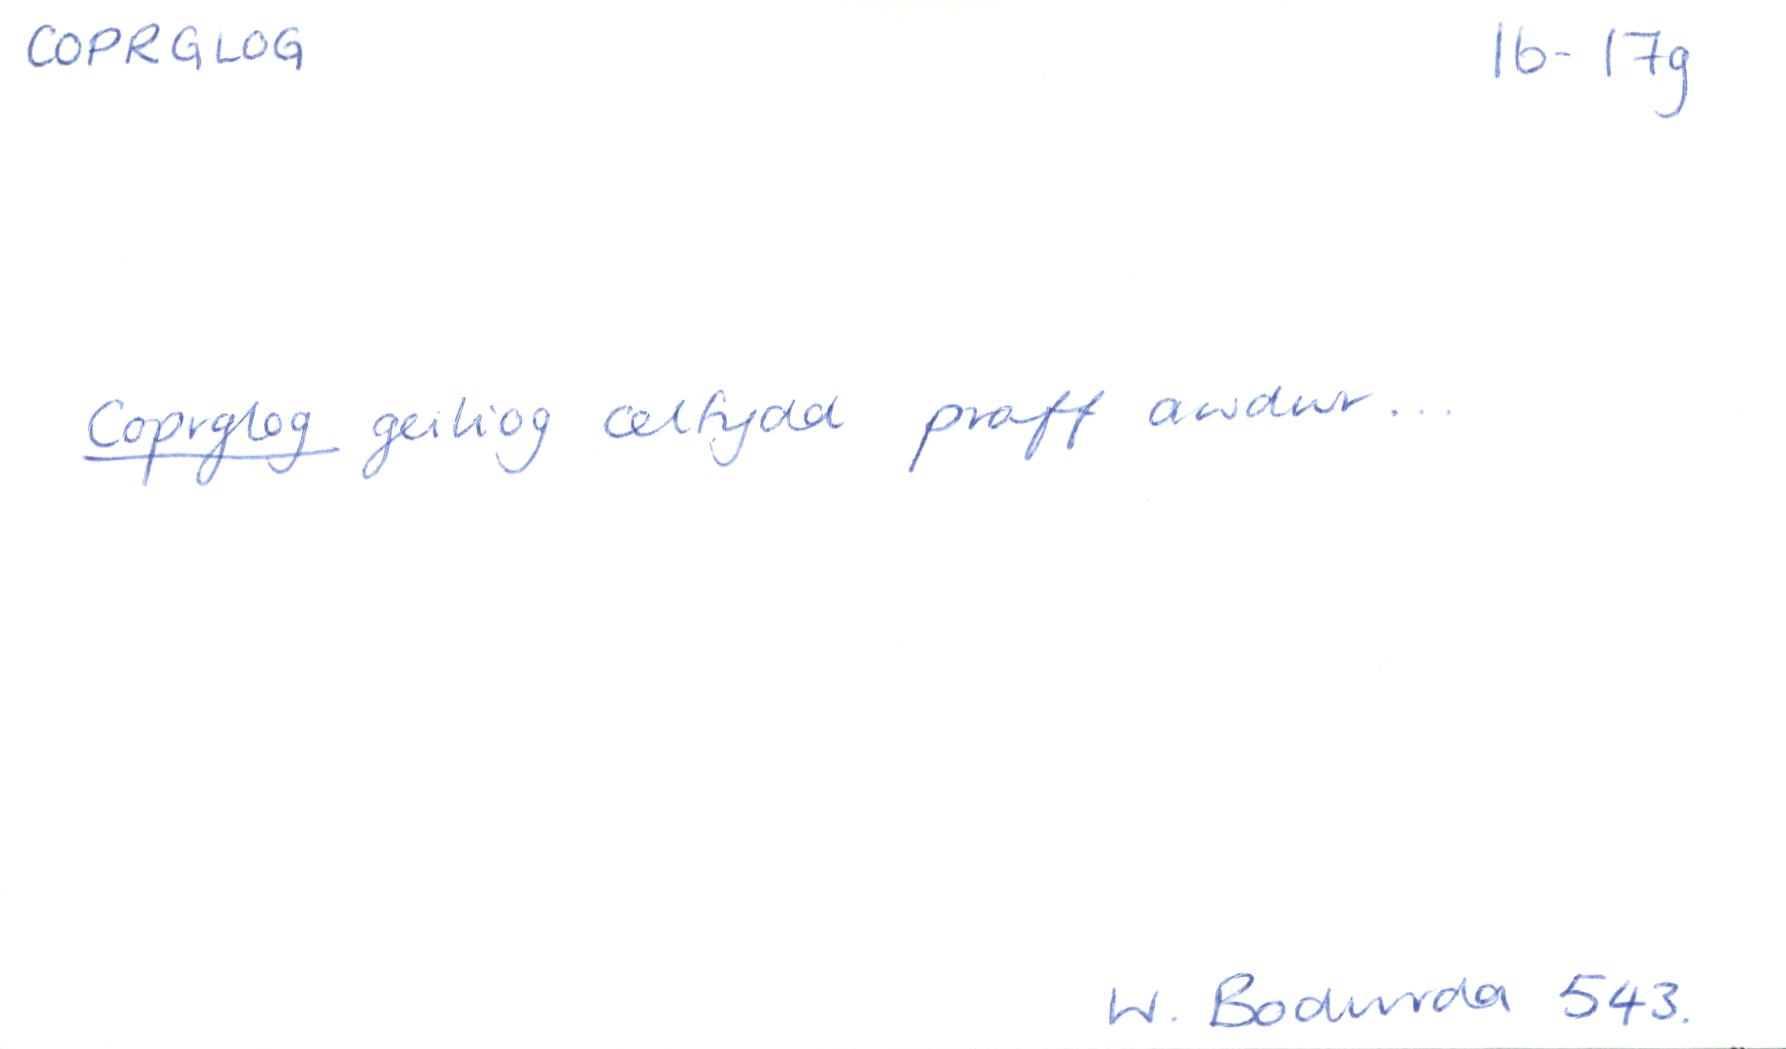 COPRGLOG 16-17g
Coprglog geiliog celfydd praff awdur...
W. Bodwrda 543.